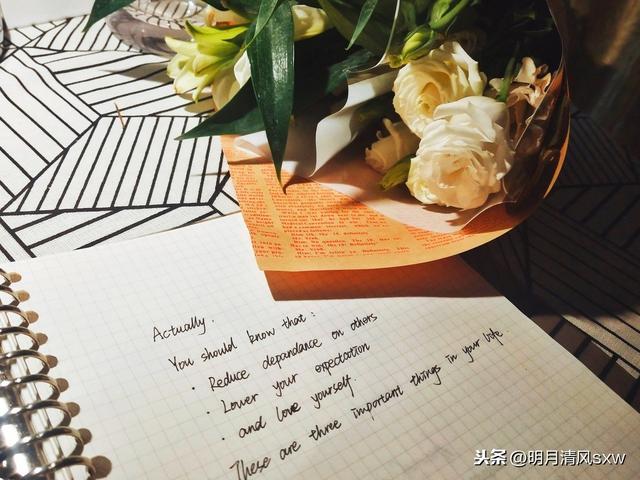 Actually.
You should know that:
· Reduce dependance on others
· Lower your expectation
· and love yourself.
These are three important things in your life.
头条 @明月清风sxw